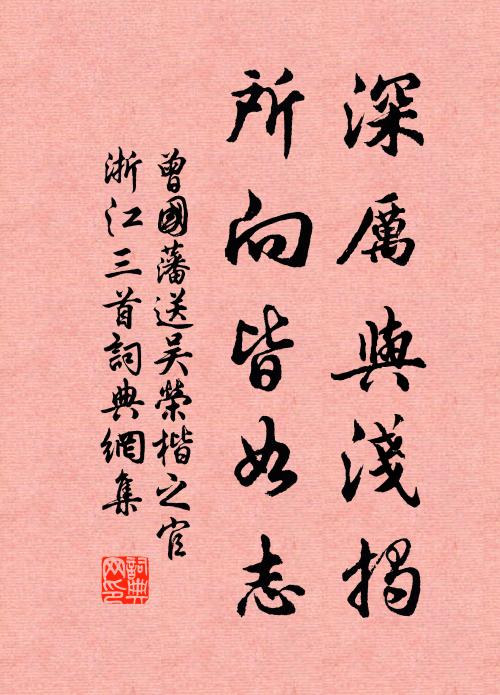 深厲與淺揭
所向皆如志
曾國藩送吴榮楷之官
浙江三首詞典網集
詞典
网印